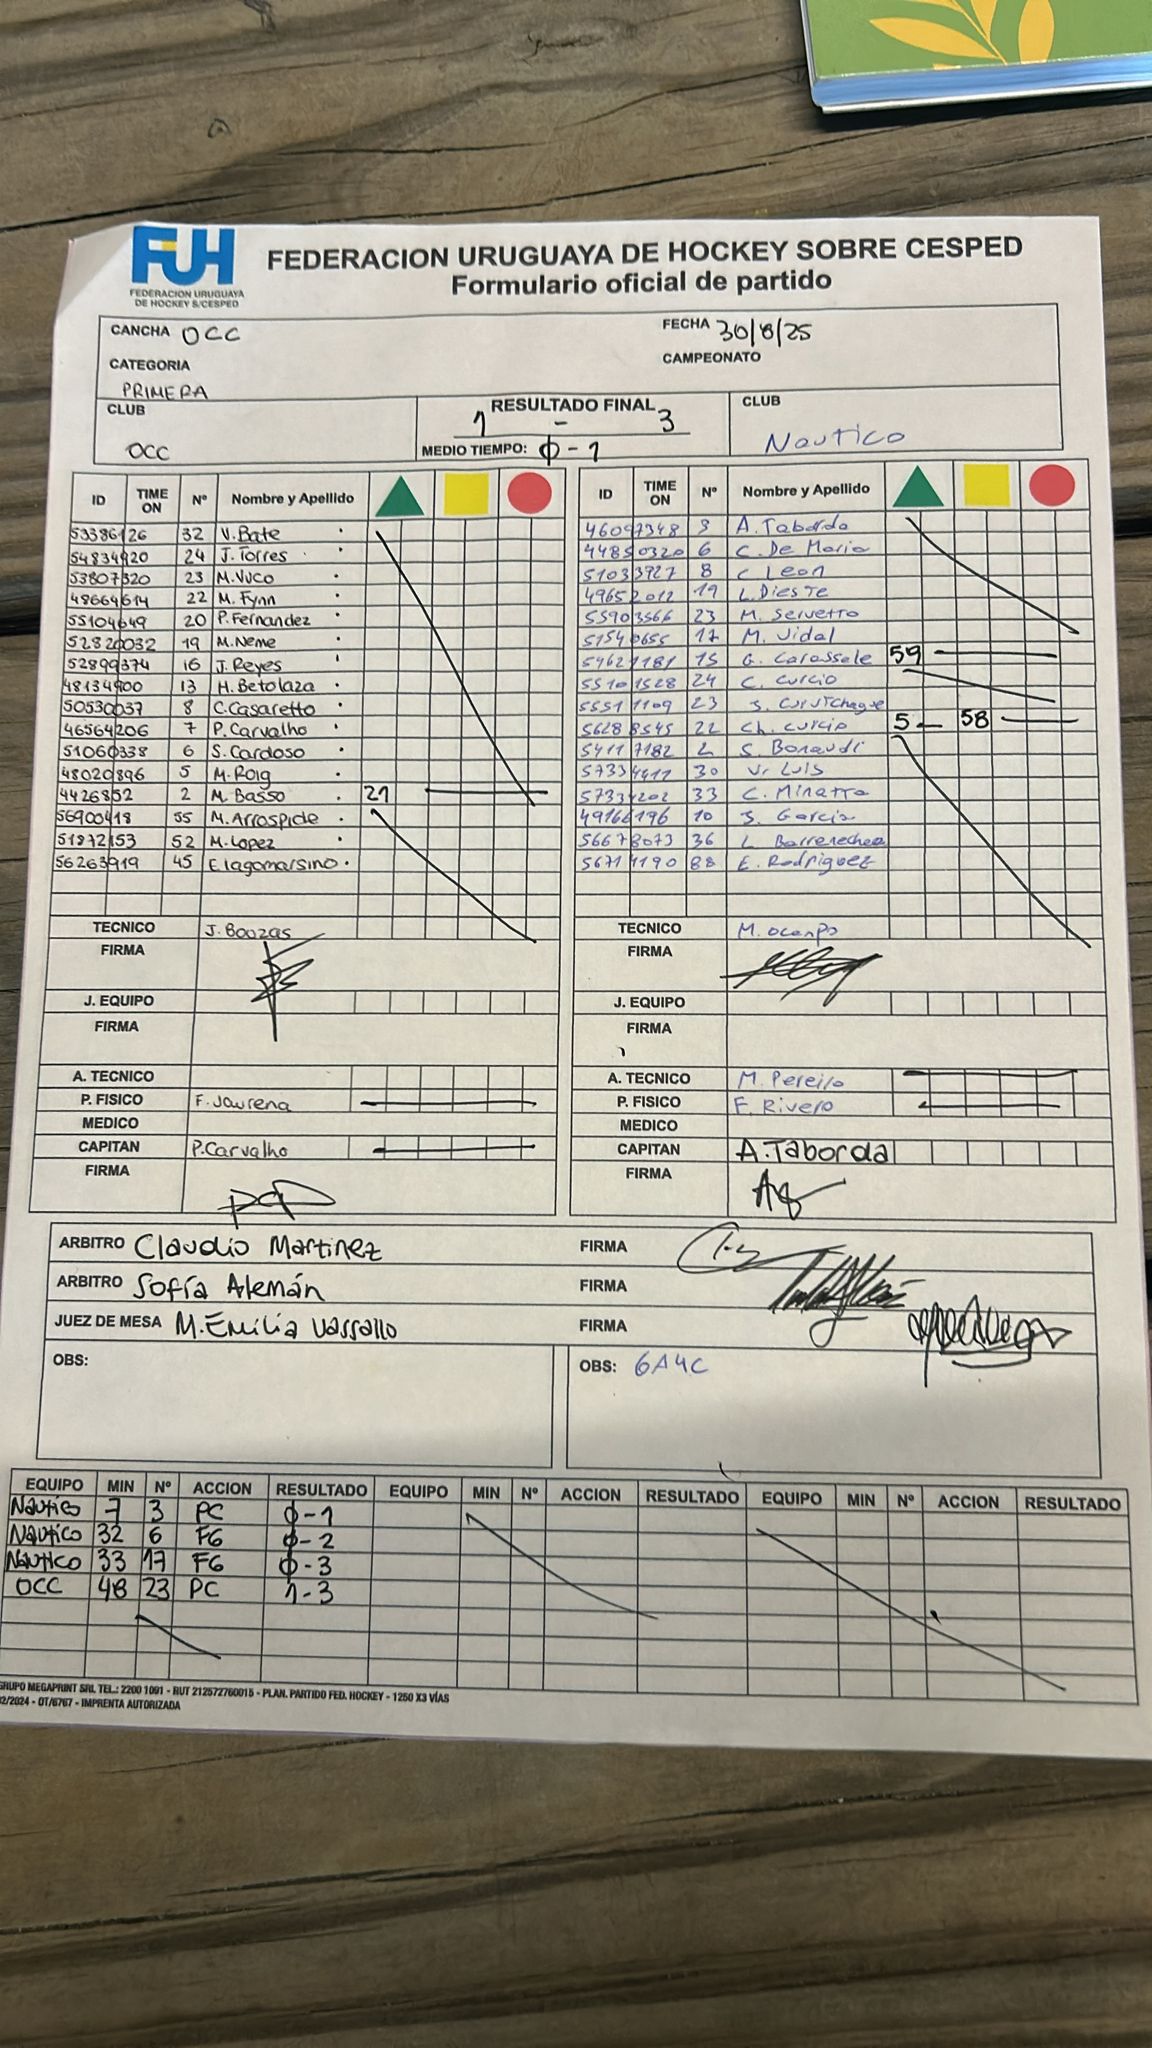 FUH
FEDERACION URUGUAYA
DE HOCKEY S/CESPED
FEDERACION URUGUAYA DE HOCKEY SOBRE CESPED
Formulario oficial de partido
CANCHA OCC FECHA 30/8/25
CATEGORIA CAMPEONATO
PRIMERA
CLUB RESULTADO FINAL CLUB
1 - 3
OCC MEDIO TIEMPO: Ø-1 Nautico
ID TIME ON Nº Nombre y Apellido ID TIME ON Nº Nombre y Apellido
53386126 32 V.Bate 46097348 3 A. Taborda
54834920 24 J.Torres 44850320 6 C. De Maria
53807320 23 M.Vuco 51033927 8 C Leon
48664614 22 M. Fynn 49652012 19 L.Dieste
55104649 20 P.Fernandez 55903566 23 M. Servetto
52820032 19 M.Neme 51540655 17 M. Vidal
52899374 16 J.Reyes 54621181 15 G. Carossele 59
48134900 13 H.Betolaza 55101528 24 C. Curcio
50530037 8 C.Casaretto 55511109 23
46564206 7 P.Carvalho 56288545 22 Ch. Curcio 5 58
51060338 6 S.Cardoso 54117182 2 S. Bonaudi
48020896 5 M.Roig 57334911 30 V. Luis
4426852 2 M. Basso 21 57334202 33 C. Minatta
56900418 55 M.Arrospide 49166196 10 S. Garcia
51872153 52 M.Lopez 56678073 36 L Barrenechea
56263919 45 E.lagomarsino 56711190 88 E. Rodriguez
TECNICO J.Bouzas TECNICO M. Ocampo
FIRMA FIRMA
J. EQUIPO J. EQUIPO
FIRMA FIRMA
A. TECNICO A. TECNICO M. Pereilo
P. FISICO F. Jaurena P. FISICO F. Rivero
MEDICO MEDICO
CAPITAN P.Carvalho CAPITAN A.Taborda
FIRMA FIRMA
ARBITRO Claudio Martinez FIRMA
ARBITRO Sofía Alemán FIRMA
JUEZ DE MESA M.Emilia Vassallo FIRMA
OBS: OBS: 6A4C
EQUIPO MIN Nº ACCION RESULTADO EQUIPO MIN Nº ACCION RESULTADO EQUIPO MIN Nº ACCION RESULTADO
Náutico 7 3 PC Ø-1
Náutico 32 6 FG Ø-2
Náutico 33 17 FG Ø-3
OCC 48 23 PC 1-3
GRUPO MEGAPRINT SRL TEL.: 2200 1091 - RUT 212572760015 - PLAN. PARTIDO FED. HOCKEY - 1250 X3 VÍAS
02/2024 - OT/6767 - IMPRENTA AUTORIZADA